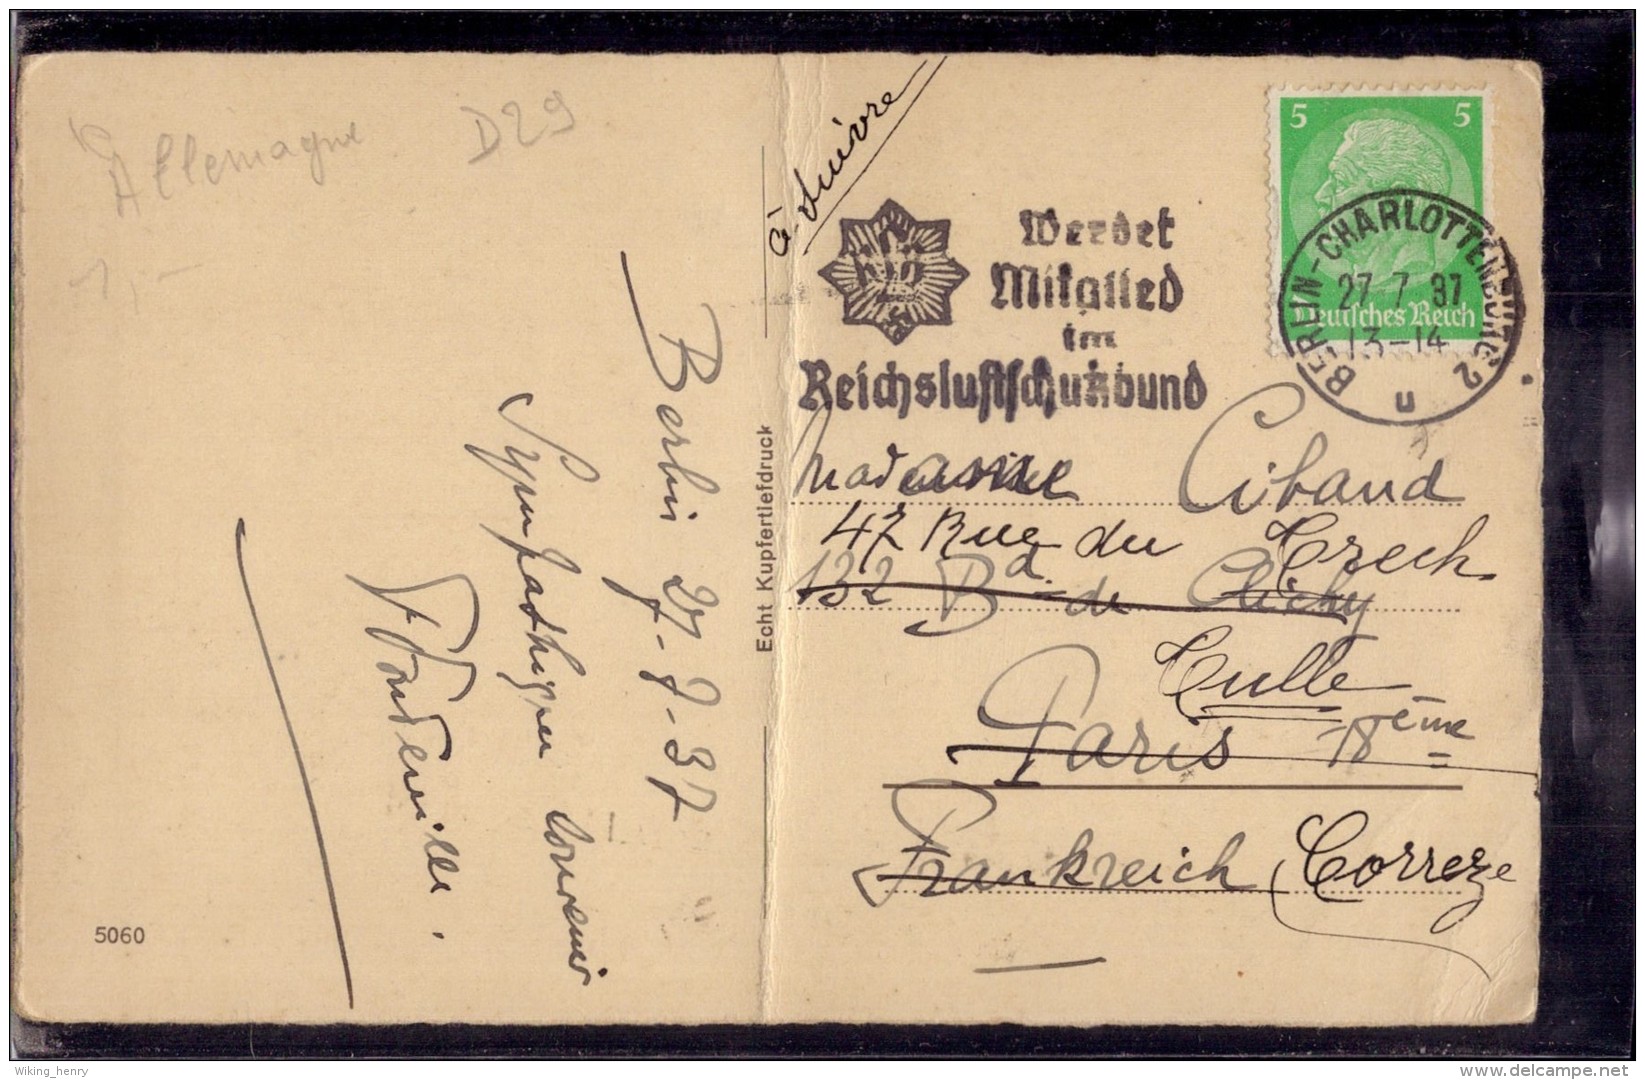 Allemagne
D29
1,-
à suivre
Werdet
Mitglied
im
Reichsluftschutzbund
5 5
Deutsches Reich
BERLIN-CHARLOTTENBURG 2
27.7.37
13-14
u
Berlin 27-7-37
Sympathique souvenir
Echt Kupfertiefdruck
5060
Madame Cibaud
47 Rue du Trech
132 Bd de Clichy
Tulle
Paris 18ème
Frankreich
Correze
Wiking_henry
www.delcampe.net